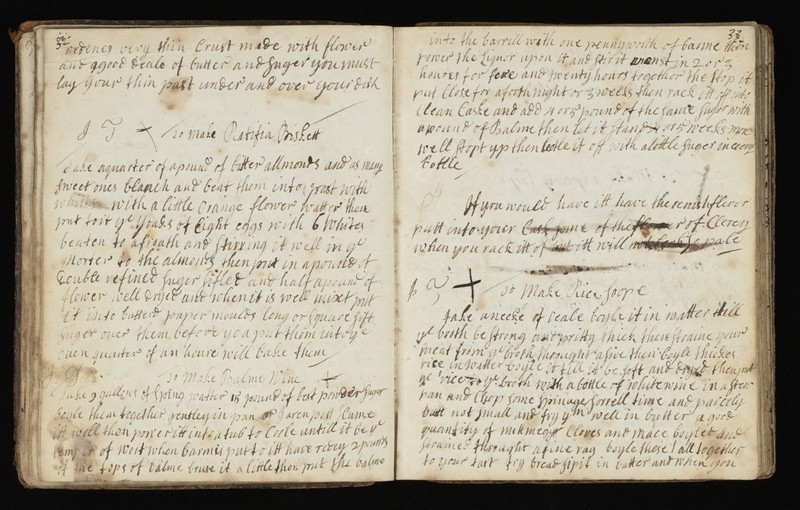 ordened very thin Crust made with flower
and a good deale of butter and suger you must
lay your thin past under and over your dish
To make Ratifia Bisket
Take a quarter of a pound of bitter allmonds and as many
sweet ones blanch and beat them into past with
with a little Orange flower watter then
put to it ye yoaks of Eight eggs with 6 whites
beaten to a froath and stirring it well in ye
morter to the almonds then put in a pound of
double refined suger sifted and half a pound of
flower well dryed and when it is well mixt put
it into butterd paper moulds long or square sift
suger over them before you put them into ye
oven quarter of an houre will bake them
To make Balme Wine
Take 9 gallons of spring watter 13 pound of best powder suger
boyle them together gently in pan or
itt well then power itt into a tub to Coole untill it be ye
of wort when barmis put to itt have redey 2 pounds
of the tops of balme bruse it a little then put the balme
33
into the barrill with one pennyworth of barme then
power the liquor upon it and stir it in 2 or 3
houres for foure and twenty hours together the stop it
put Close for a forthnight or 3 weeks then rack itt of into
Clean Caske and add 4 or 5 pound of the same suger with
a pound of Balme then let it stand 4 or 5 weeks more
well stopt up then bottle it off with a little suger in every
bottle
If you would have itt have the renish flever
putt into your of the of Clerey
when you rack itt of but itt will pale
To Make Rice soope
Take a necke of veale boyle it in watter till
ye broth be strong and pritty thick then straine your
meat from ye broth throught a sive then boyle the
rice in watter boyle it till it be soft and then put
ye rice to ye broth with a bottle of white wine in a stew
pan and Chop some spinage sorrell time and parcely
butt not small and fry ym well in butter a good
quantity of nutmegs Cloves and mace boyled and
straine throught a fine rag boyle these all together
to your tast fry bread sipit in butter and when you